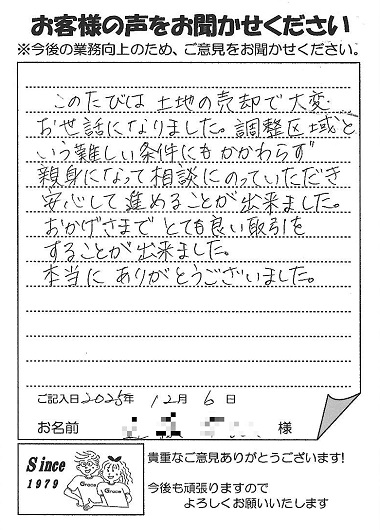 お客様の声をお聞かせください
※今後の業務向上のため、ご意見をお聞かせください。
このたびは 土地の売却で大変
お世話になりました。調整区域と
いう難しい条件にもかかわらず
親身になって相談にのっていただき
安心して進めることが出来ました。
おかげさまで とても良い取引を
することが出来ました。
本当に ありがとうございました。
ご記入日2025年 12月 6日
お名前 様
Since
1979
Grace
Grace
貴重なご意見ありがとうございます!
今後も頑張りますので
よろしくお願いいたします